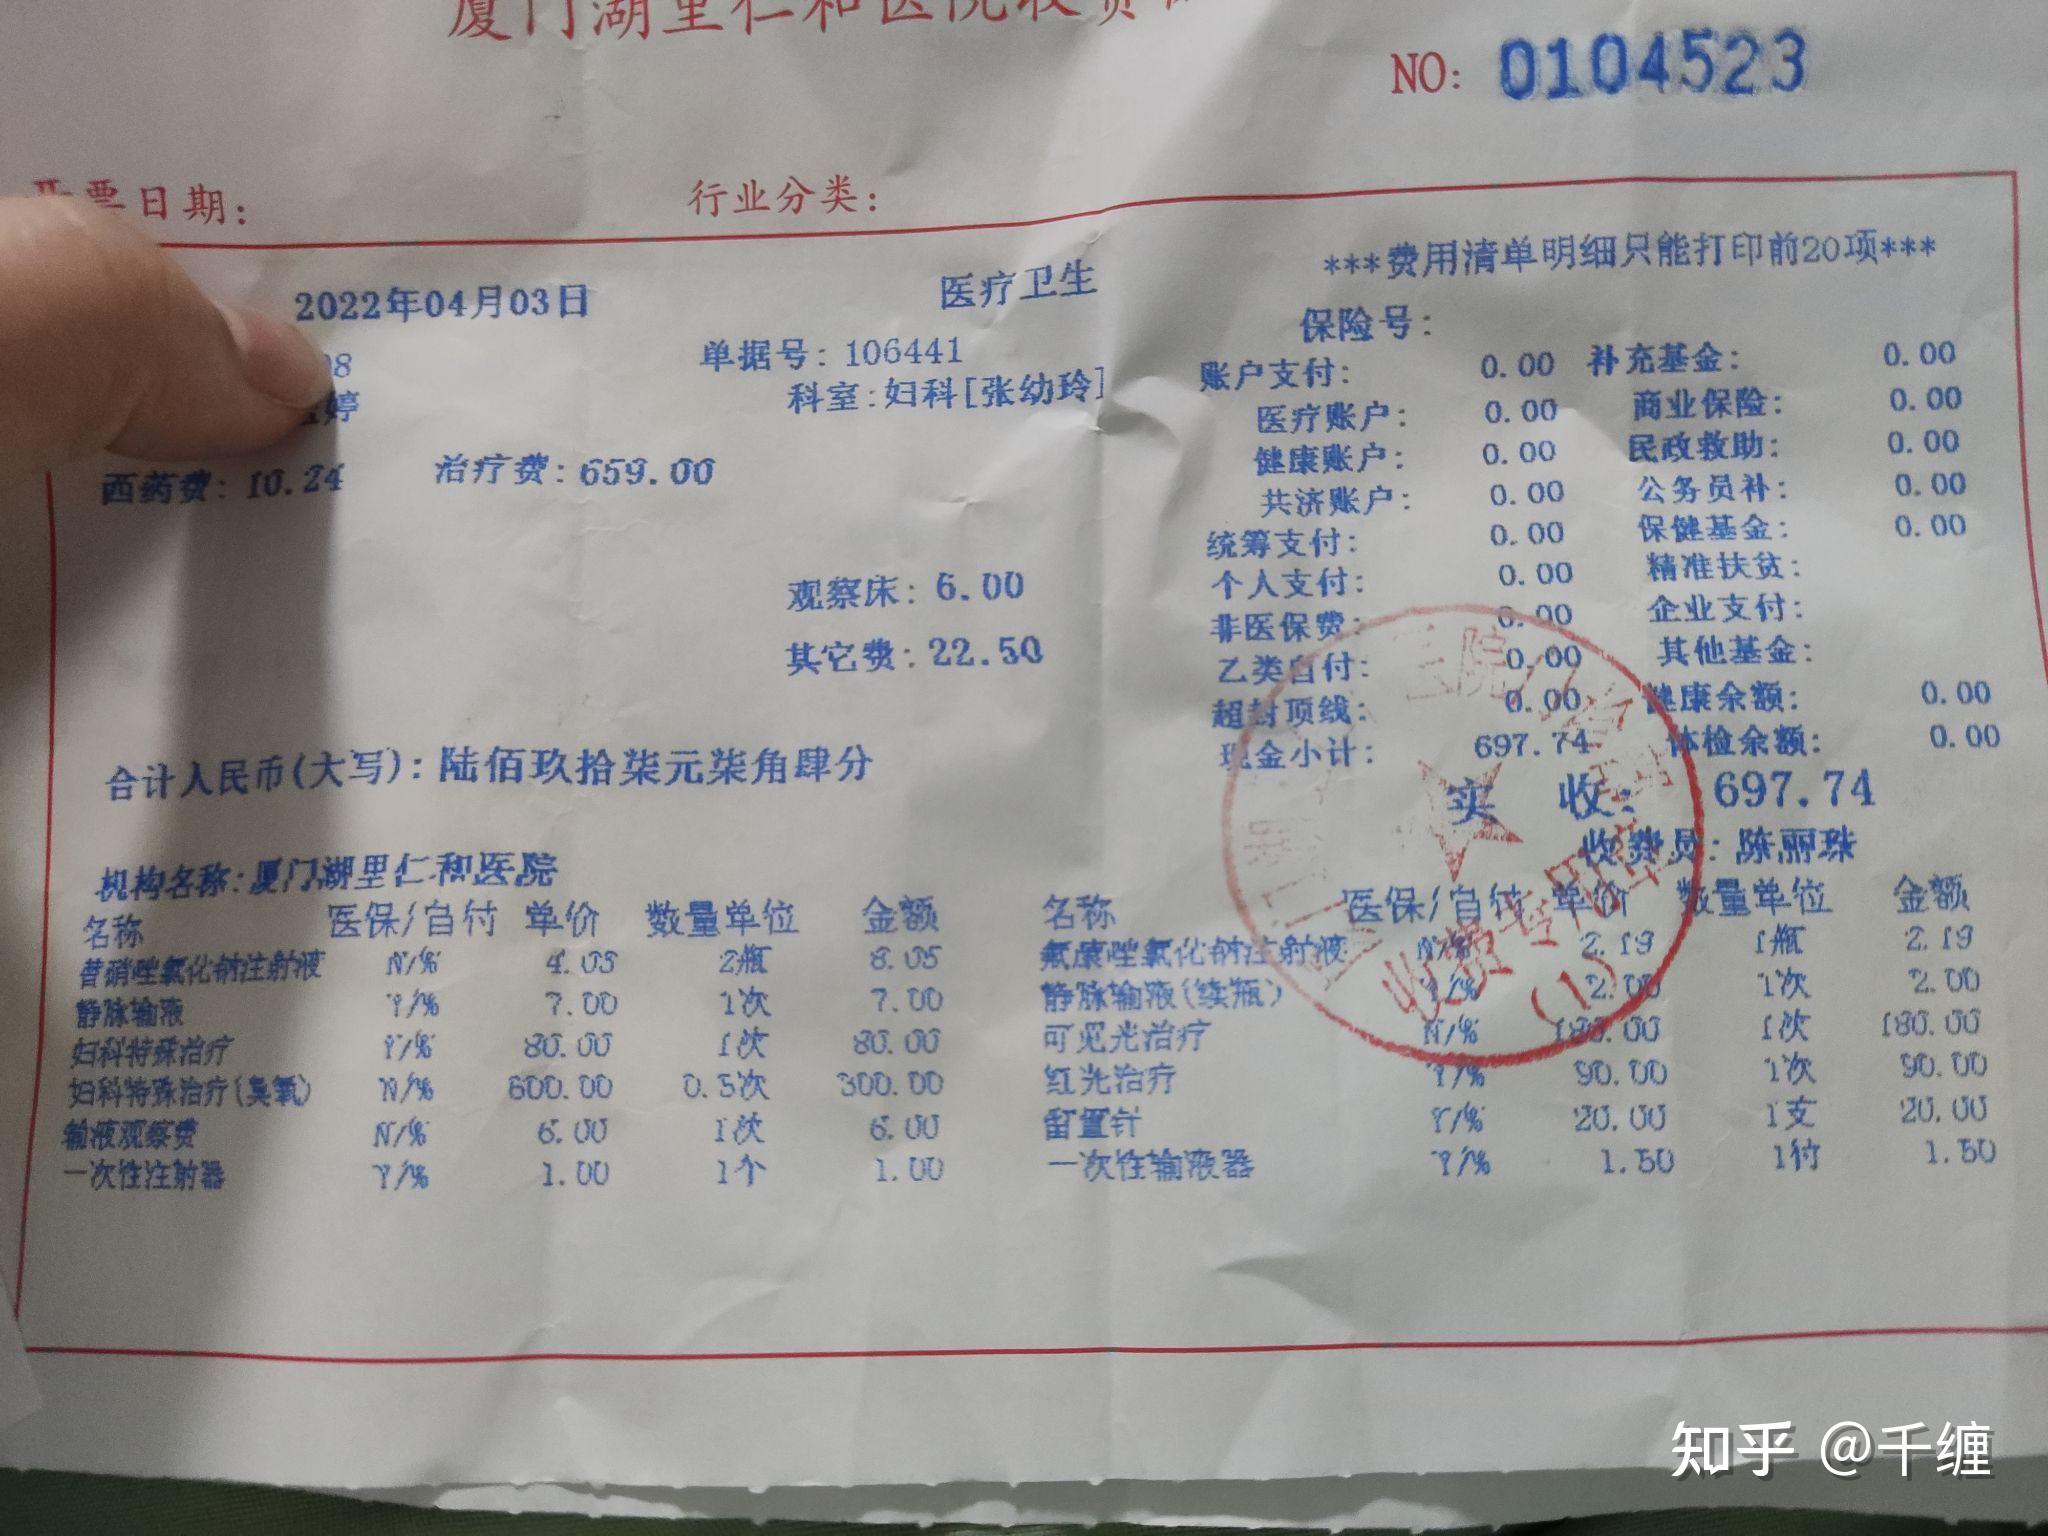 厦门湖里仁和医院收费
NO: 0104523
开票日期: 行业分类:
2022年04月03日 医疗卫生
08 单据号: 106441
婷 科室:妇科[张幼玲]
西药费: 10.24 治疗费: 659.00
观察床: 6.00
其它费: 22.50
合计人民币(大写): 陆佰玖拾柒元柒角肆分
***费用清单明细只能打印前20项***
保险号:
账户支付: 0.00 补充基金: 0.00
医疗账户: 0.00 商业保险: 0.00
健康账户: 0.00 民政救助: 0.00
共济账户: 0.00 公务员补: 0.00
统筹支付: 0.00 保健基金: 0.00
个人支付: 0.00 精准扶贫:
非医保费: 0.00 企业支付:
乙类自付: 0.00 其他基金:
超封顶线: 0.00 健康余额: 0.00
现金小计: 697.74 体检余额: 0.00
实 收: 697.74
收费员: 陈丽珠
机构名称:厦门湖里仁和医院
名称 医保/自付 单价 数量单位 金额 名称 医保/自付 单价 数量单位 金额
替硝唑氯化钠注射液 N/% 4.03 2瓶 8.05 氟康唑氯化钠注射液 N/% 2.19 1瓶 2.19
静脉输液 Y/% 7.00 1次 7.00 静脉输液(续瓶) Y/% 2.00 1次 2.00
妇科特殊治疗 Y/% 80.00 1次 80.00 可见光治疗 N/% 180.00 1次 180.00
妇科特殊治疗(臭氧) N/% 600.00 0.5次 300.00 红光治疗 Y/% 90.00 1次 90.00
输液观察费 N/% 6.00 1次 6.00 留置针 Y/% 20.00 1支 20.00
一次性注射器 Y/% 1.00 1个 1.00 一次性输液器 Y/% 1.50 1付 1.50
收费专用章
(1)
知乎 @千缠